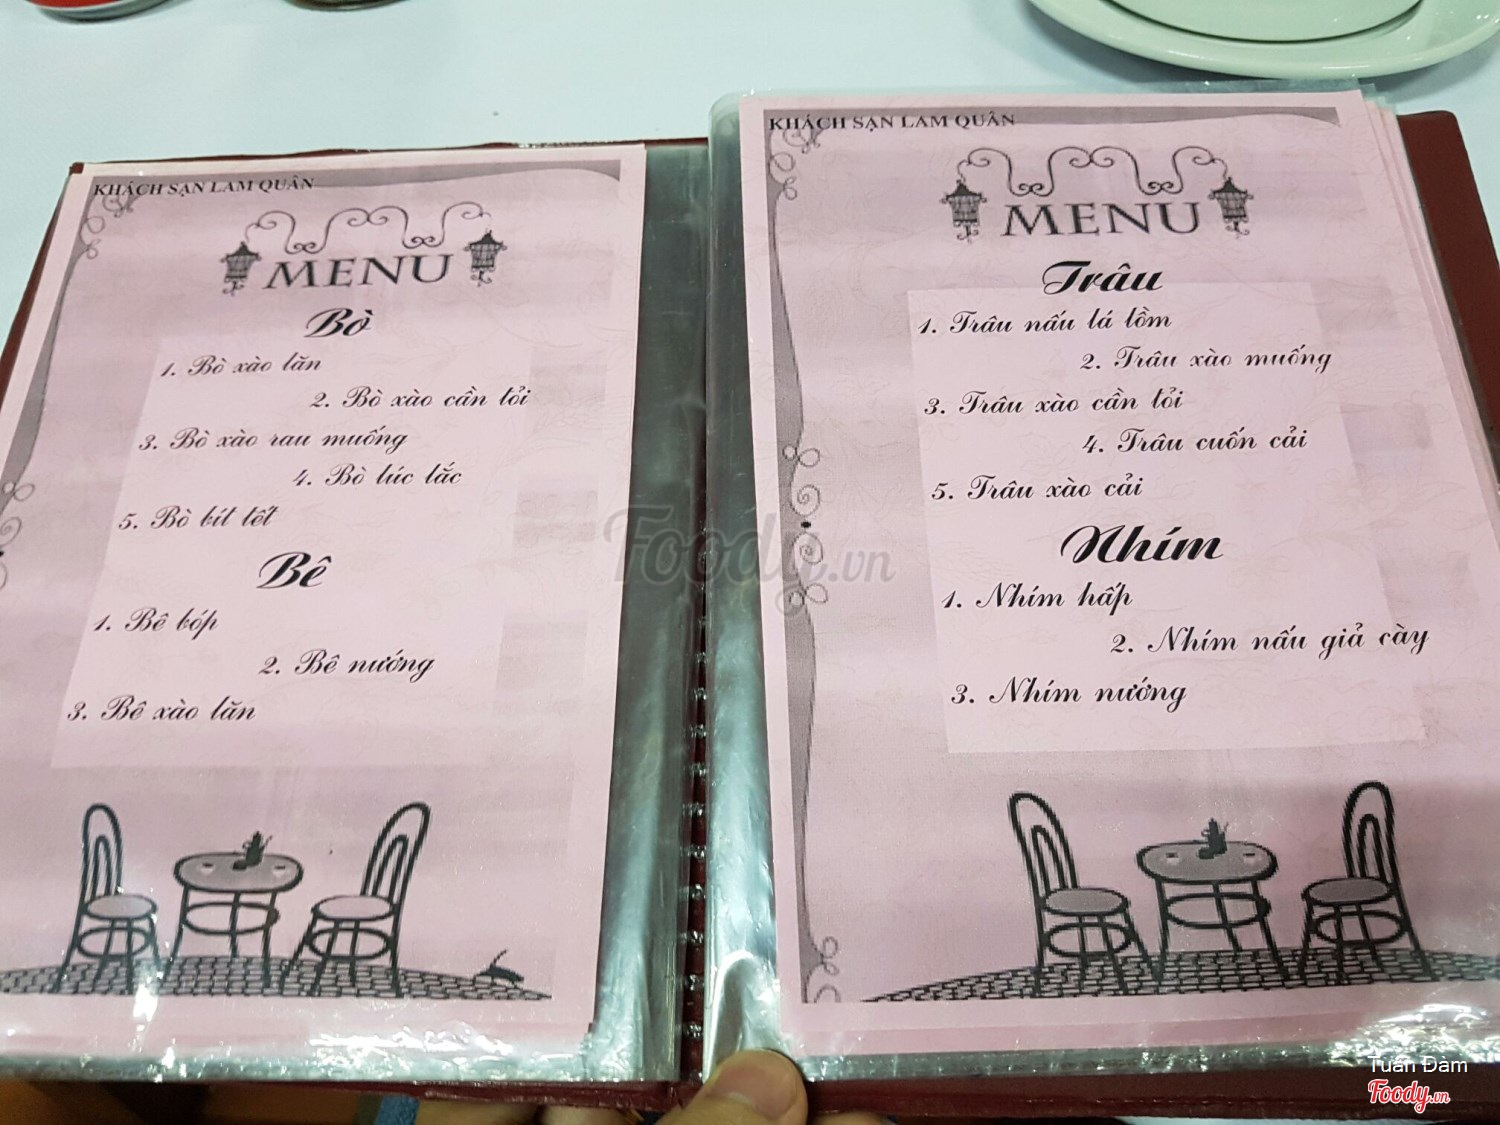 KHÁCH SẠN LAM QUÂN
MENU
Bò
1. Bò xào lăn
2. Bò xào cần tỏi
3. Bò xào rau muống
4. Bò lúc lắc
5. Bò bít tết
Bê
1. Bê bóp
2. Bê nướng
3. Bê xào lăn
KHÁCH SẠN LAM QUÂN
MENU
Trâu
1. Trâu nấu lá lồm
2. Trâu xào muống
3. Trâu xào cần tỏi
4. Trâu cuốn cải
5. Trâu xào cải
Nhím
1. Nhím hấp
2. Nhím nấu giả cày
3. Nhím nướng
Foody.vn
Tuấn Đàm
Foody.vn